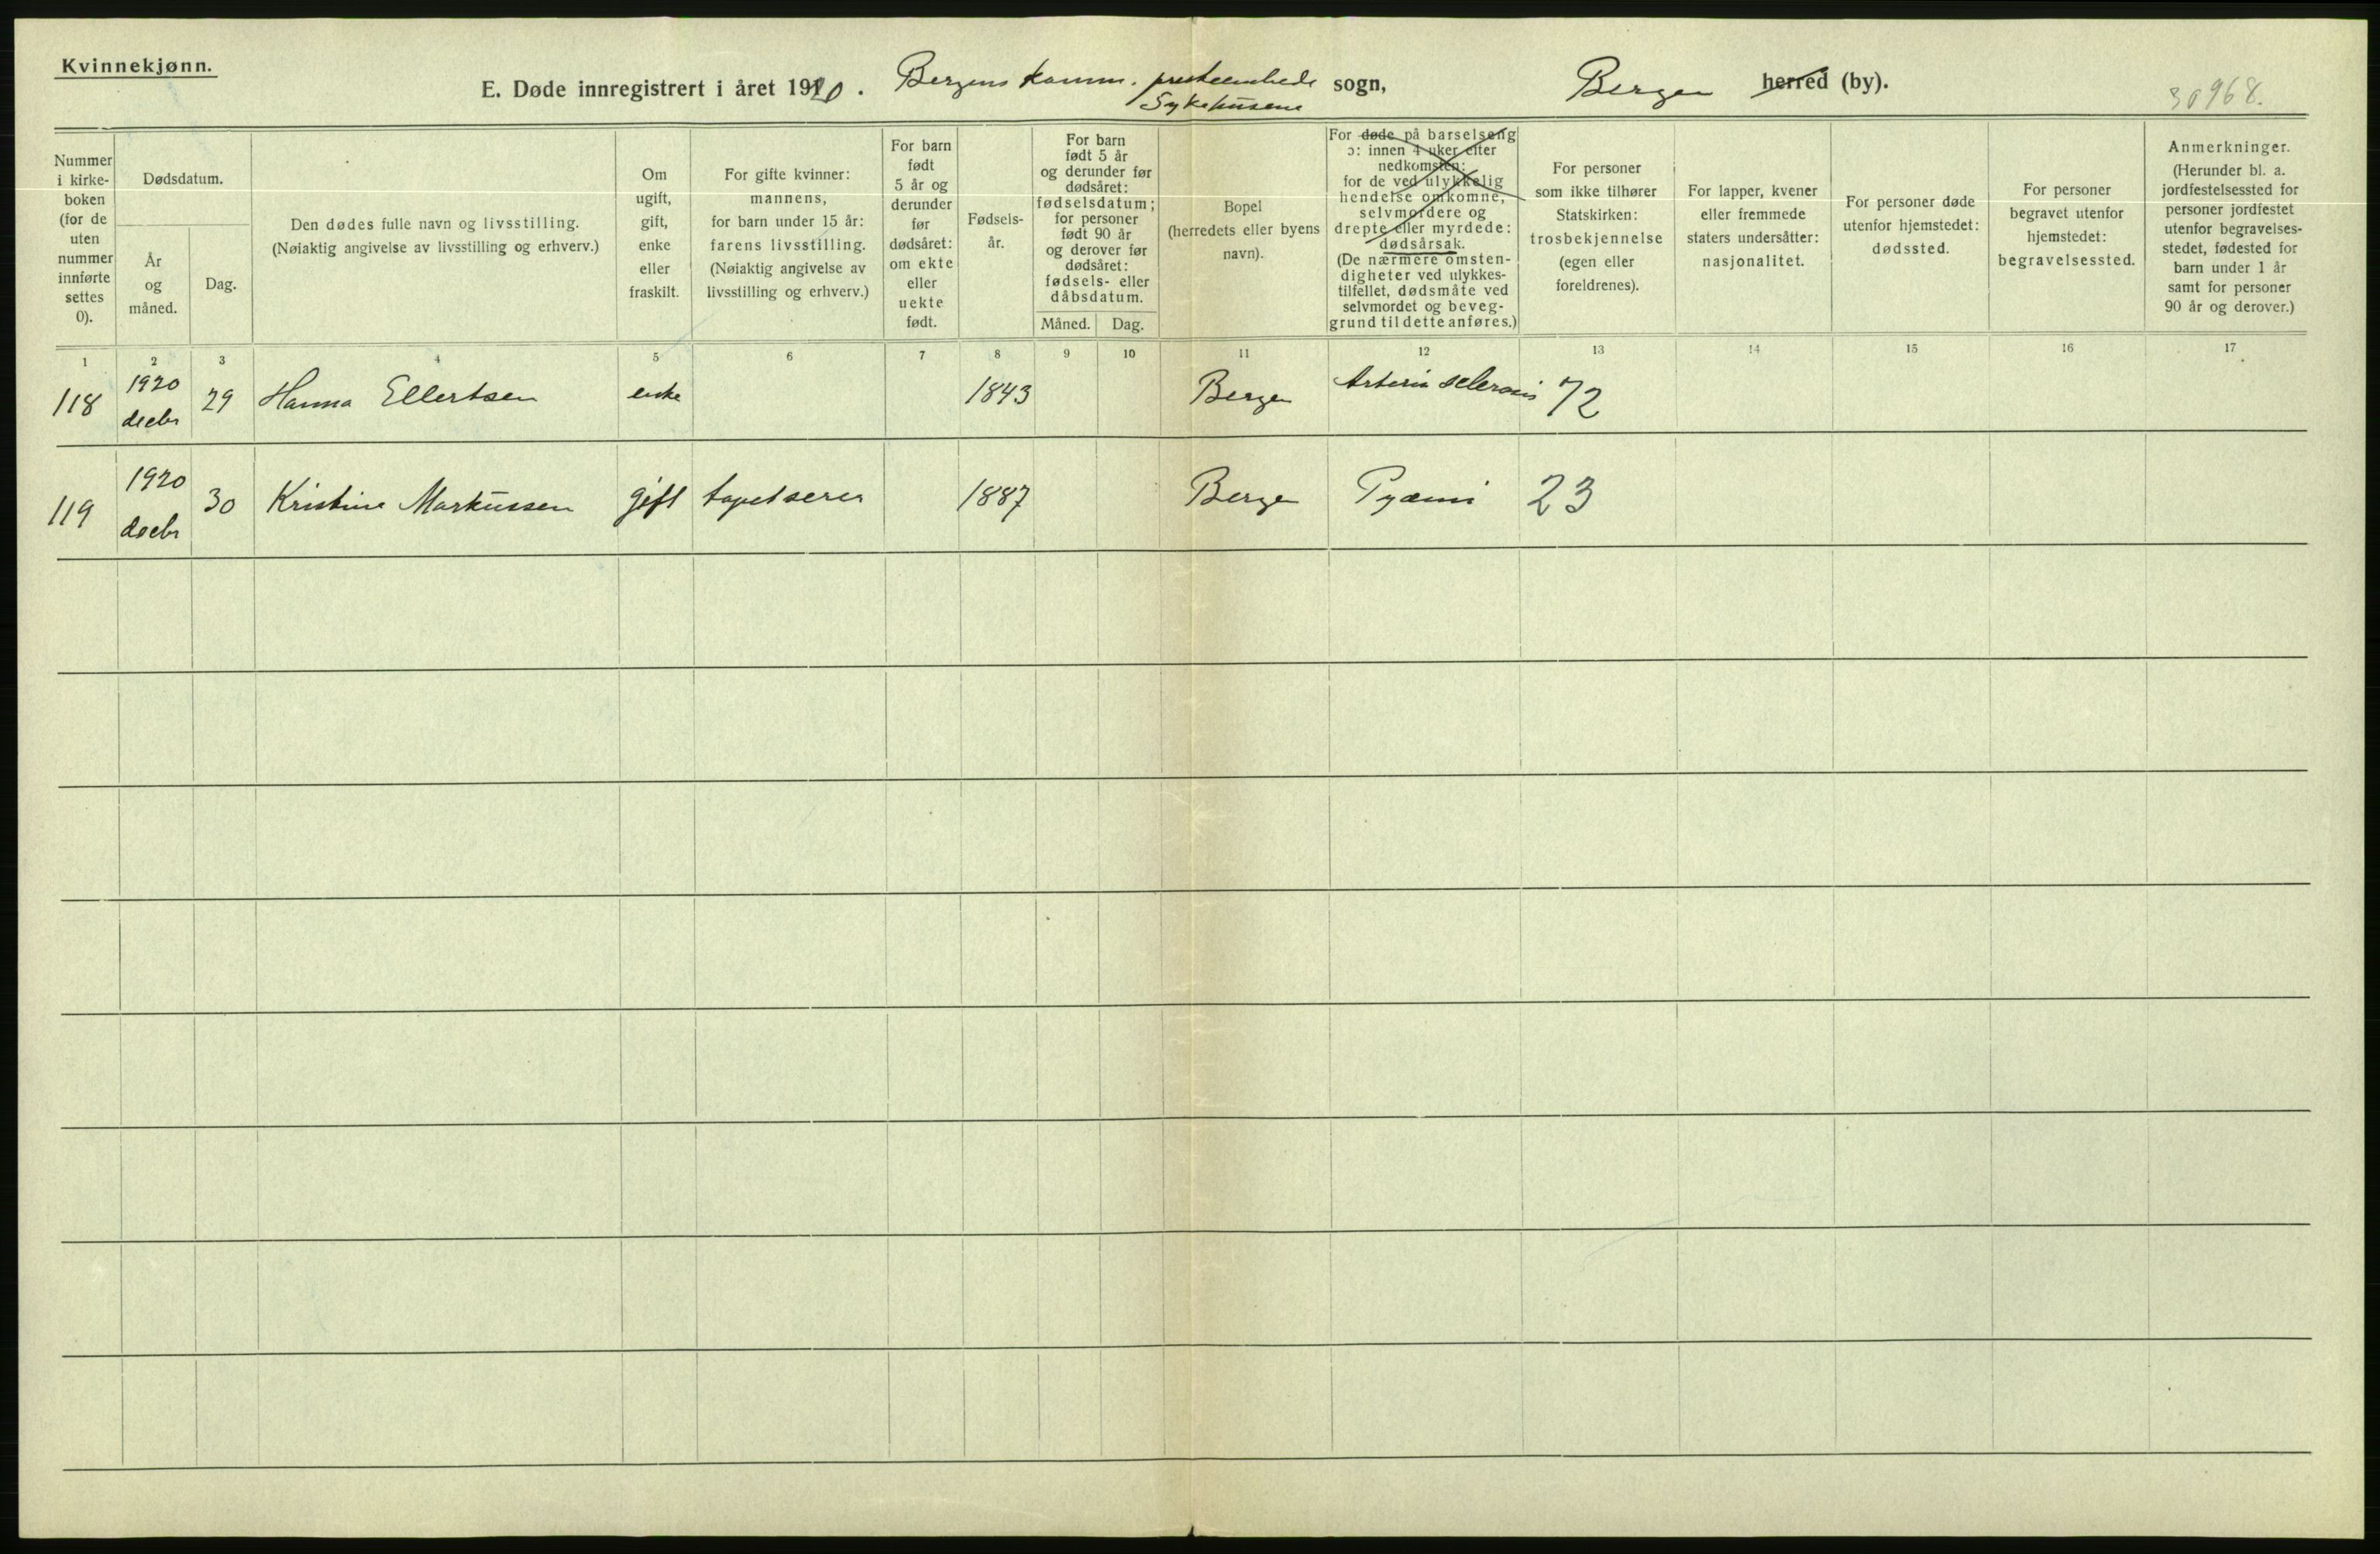 Kvinnekjønn.
E. Døde innregistrert i året 1920. Bergens komm. presteembede sogn, Bergen herred (by).
Sykehusene
30968.
Nummer
i kirke-
boken
(for de
uten
nummer
innførte
settes
0).
Dødsdatum.
År
og
måned.
Dag.
Den dødes fulle navn og livsstilling.
(Nøiaktig angivelse av livsstilling og erhverv.)
Om
ugift,
gift,
enke
eller
fraskilt.
For gifte kvinner:
mannens,
for barn under 15 år:
farens livsstilling.
(Nøiaktig angivelse av
livsstilling og erhverv.)
For barn
født
5 år og
derunder
før
dødsåret:
om ekte
eller
uekte
født.
Fødsels-
år.
For barn
født 5 år
og derunder før
dødsåret:
fødselsdatum;
for personer
født 90 år
og derover før
dødsåret:
fødsels- eller
dåbsdatum.
Måned. Dag.
Bopel
(herredets eller byens
navn).
For døde på barselseng
ɔ: innen 4 uker efter
nedkomsten:
for de ved ulykkelig
hendelse omkomne,
selvmordere og
drepte eller myrdede:
dødsårsak.
(De nærmere omsten-
digheter ved ulykkes-
tilfellet, dødsmåte ved
selvmordet og beveg-
grund til dette anføres.)
For personer
som ikke tilhører
Statskirken:
trosbekjennelse
(egen eller
foreldrenes).
For lapper, kvener
eller fremmede
staters undersåtter:
nasjonalitet.
For personer døde
utenfor hjemstedet:
dødssted.
For personer
begravet utenfor
hjemstedet:
begravelsessted.
Anmerkninger.
(Herunder bl. a.
jordfestelsessted for
personer jordfestet
utenfor begravelses-
stedet, fødested for
barn under 1 år
samt for personer
90 år og derover.)
1 2 3 4 5 6 7 8 9 10 11 12 13 14 15 16 17
118 1920 decbr 29 Hanna Ellertsen enke 1843 Bergen Arteriosclerosis 72
119 1920 decbr 30 Kristine Markussen gift tapetserer 1887 Bergen Pyæmi 23